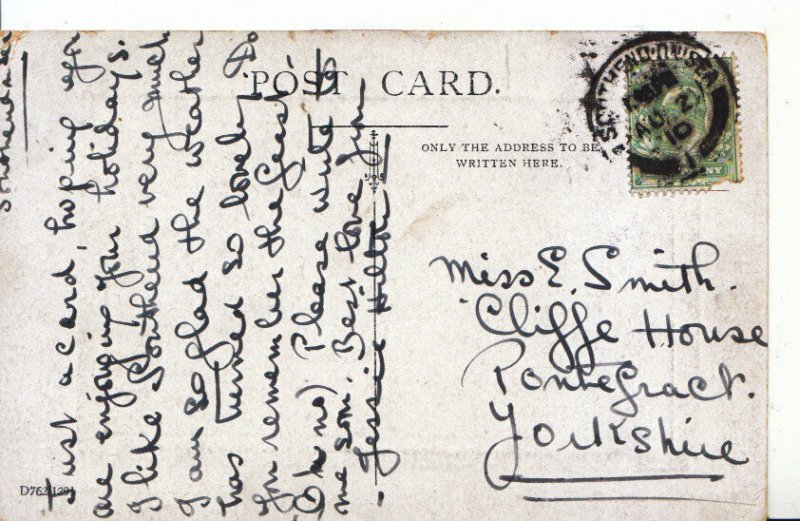 Southend on Sea
Just a card, hoping you
are enjoying your holidays.
I like Southend very much
I am so glad the weather
has turned so lovely. Do
you remember the Geese!
(Oh no) Please write to
me soon. Best love from
Jessie Hilton
POST CARD.
ONLY THE ADDRESS TO BE
WRITTEN HERE.
SOUTHEND-ON-SEA
AU 2
10
Miss E. Smith.
Cliffe House
Pontefract.
Yorkshire